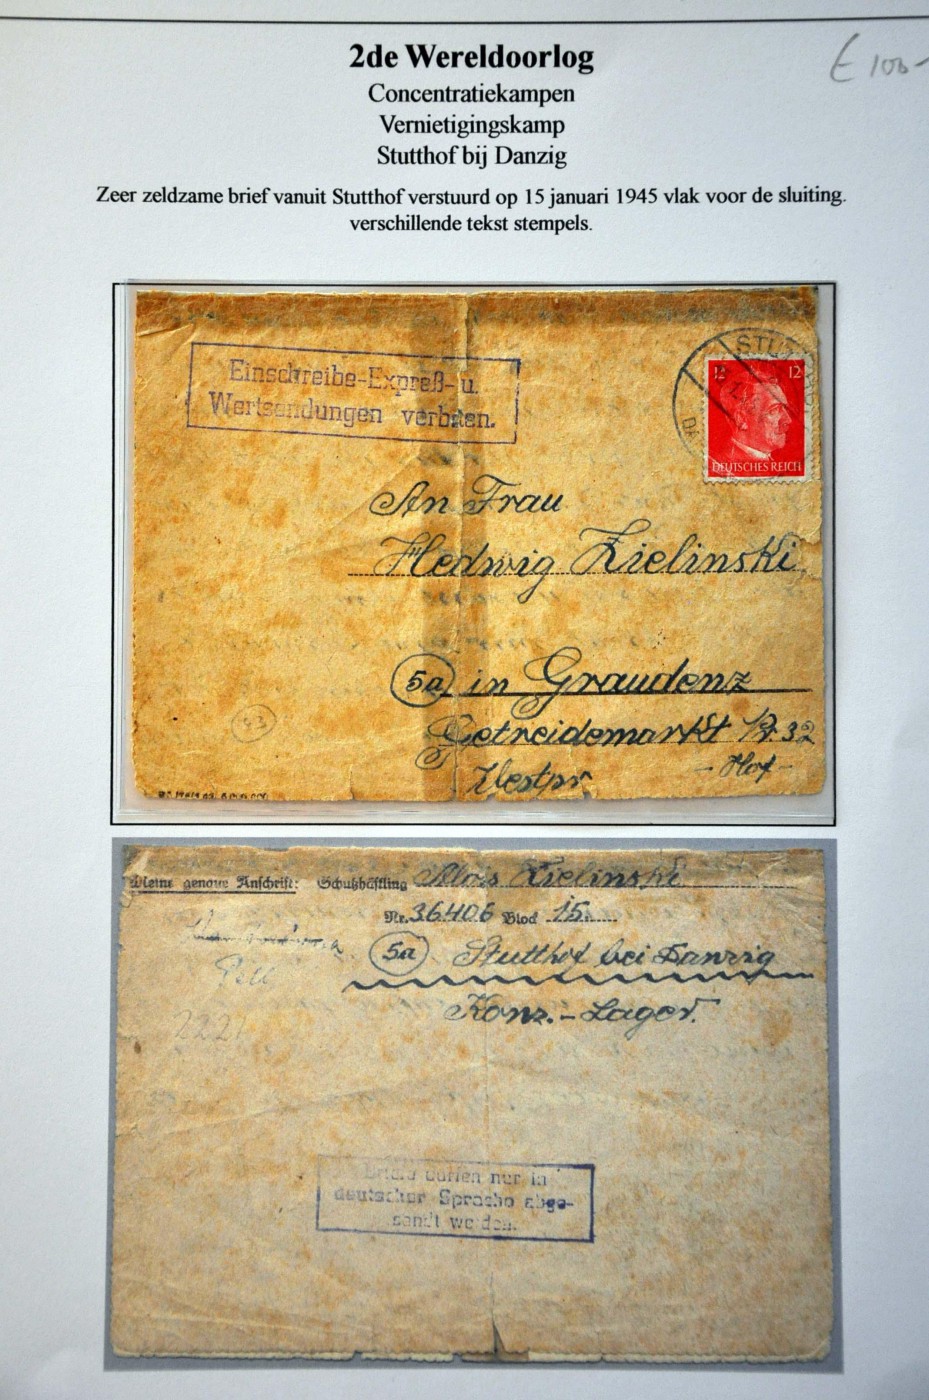 € 100-
2de Wereldoorlog
Concentratiekampen
Vernietigingskamp
Stutthof bij Danzig
Zeer zeldzame brief vanuit Stutthof verstuurd op 15 januari 1945 vlak voor de sluiting.
verschillende tekst stempels.
Einschreibe-Expreß- u.
Wertsendungen verboten.
12 12
DEUTSCHES REICH
An Frau
Hedwig Zielinski
5a in Graudenz
Getreidemarkt Nr. 32
- Hof -
Westpr
Meine genaue Anschrift: Schutzhäftling Alois Zielinski
Nr. 36406 Block 15.
5a Stutthof bei Danzig
Konz.-Lager.
2221
Briefe dürfen nur in
deutscher Sprache abge-
sandt werden.